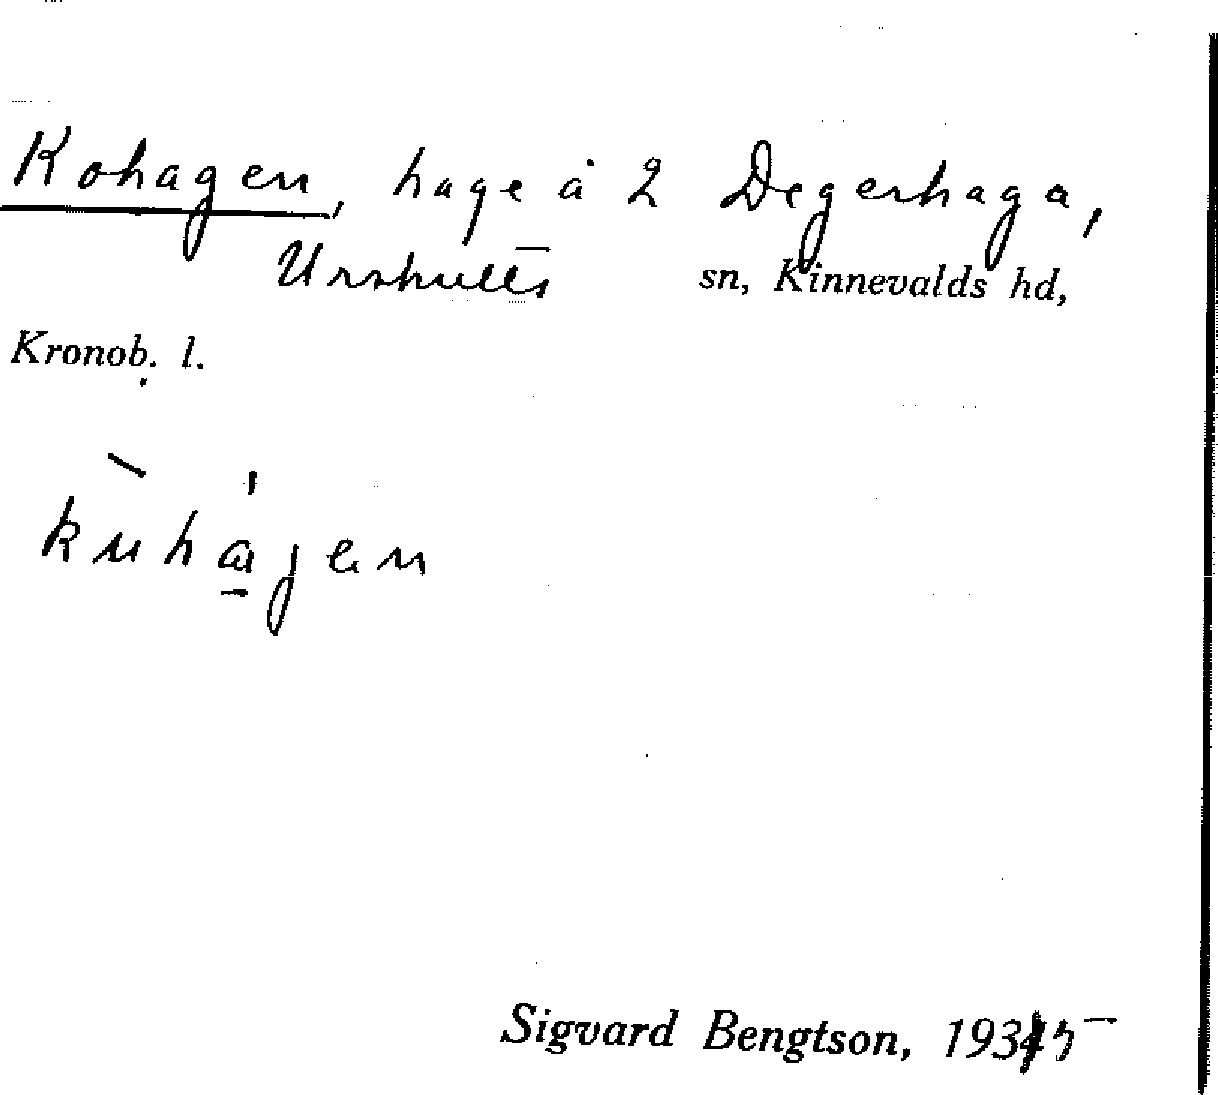 Kohagen, hage å 2 Degerhaga,
Urshults sn, Kinnevalds hd,
Kronob. l.
kùhágen
Sigvard Bengtson, 1935